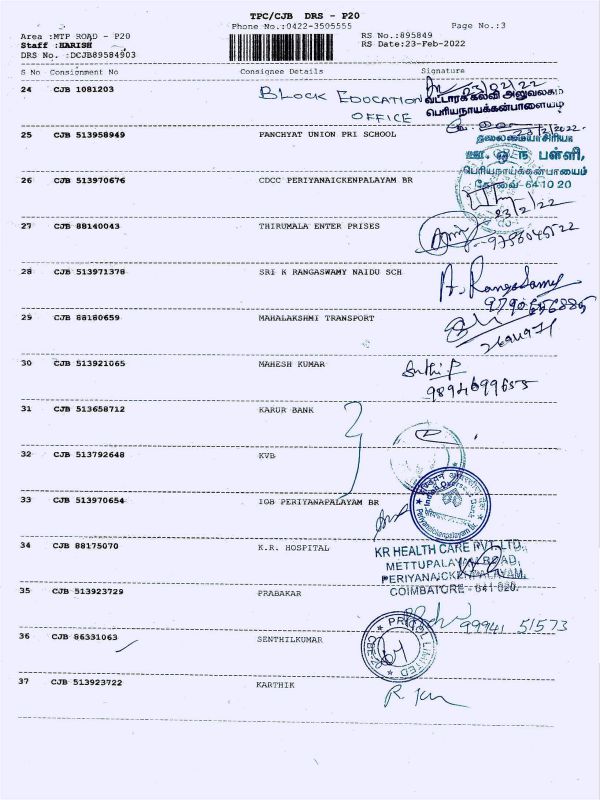 TPC/CJB DRS - P20
Phone No.:0422-3505555
Page No.:3
Area :MTP ROAD - P20
RS No.:895849
Staff :HARISH
RS Date:23-Feb-2022
DRS No. :DCJB89584903
S No Consignment No Consignee Details Signature
24 CJB 1081203 BLOCK EDUCATION OFFICE 23/02/22
வட்டாரக் கல்வி அலுவலகம்
பெரியநாயக்கன்பாளையம்
25 CJB 513958949 PANCHYAT UNION PRI SCHOOL 23/2/2022
பள்ளி,
பெரியநாயக்கன்பாளையம்
கோவை-641020
26 CJB 513970676 CDCC PERIYANAICKENPALAYAM BR
23/2/22
27 CJB 88140043 THIRUMALA ENTER PRISES
28 CJB 513971378 SRI K RANGASWAMY NAIDU SCH
A. Rangasamy
29 CJB 88180659 MAHALAKSHMI TRANSPORT
30 CJB 513921065 MAHESH KUMAR
9894699655
31 CJB 513658712 KARUR BANK
32 CJB 513792648 KVB
33 CJB 513970654 IOB PERIYANAPALAYAM BR
Indian Overseas Bank
34 CJB 88175070 K.R. HOSPITAL
KR HEALTH CARE PVT. LTD.,
METTUPALAYAM ROAD,
PERIYANAICKENPALAYAM,
COIMBATORE - 641 020.
35 CJB 513923729 PRABAKAR
99941 51573
36 CJB 86331063 SENTHILKUMAR
PRICOL LIMITED
37 CJB 513923722 KARTHIK